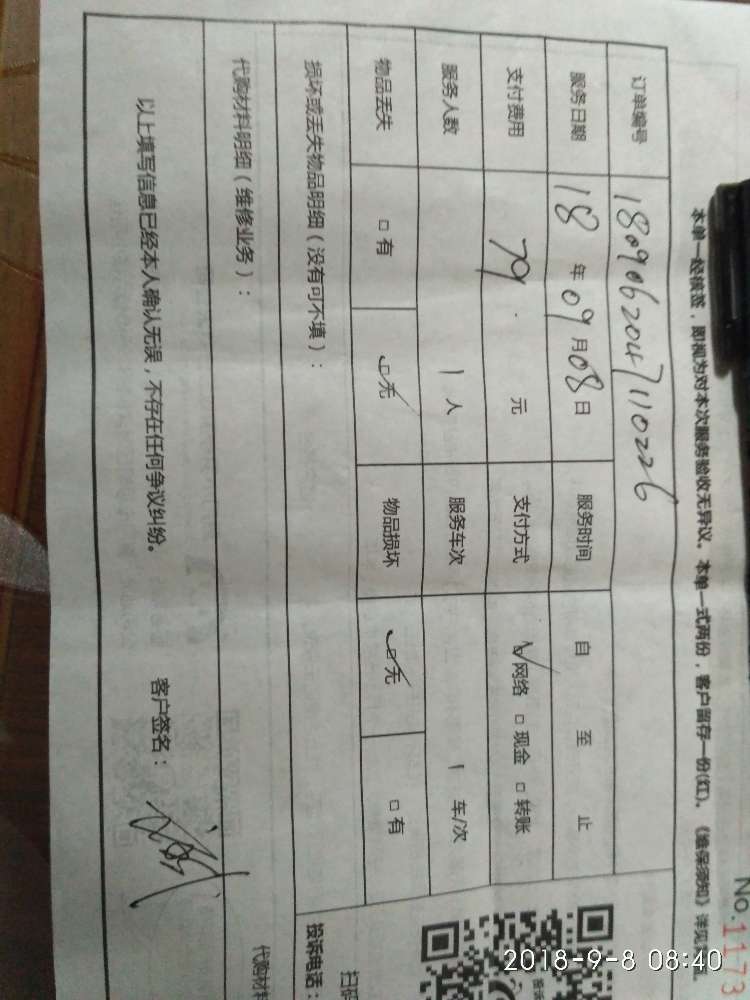 No.1173
本单一经核签，即视为对本次服务验收无异议。本单一式两份，客户留存一份(红)。《维保须知》详见
订单编号 180906204711 0226
服务日期 18 年 09 月 08 日 服务时间 自 至 止
支付费用 79. 元 支付方式 ☑网络 □现金 □转账
服务人数 1 人 服务车次 1 车/次
物品丢失 □有 ☑无 物品损坏 ☑无 □有
损坏或丢失物品明细（没有可不填）：
代购材料明细（维修业务）：
以上填写信息已经本人确认无误，不存在任何争议纠纷。 客户签名：
扫码
投诉电话：
代购材料
2018-9-8 08:40